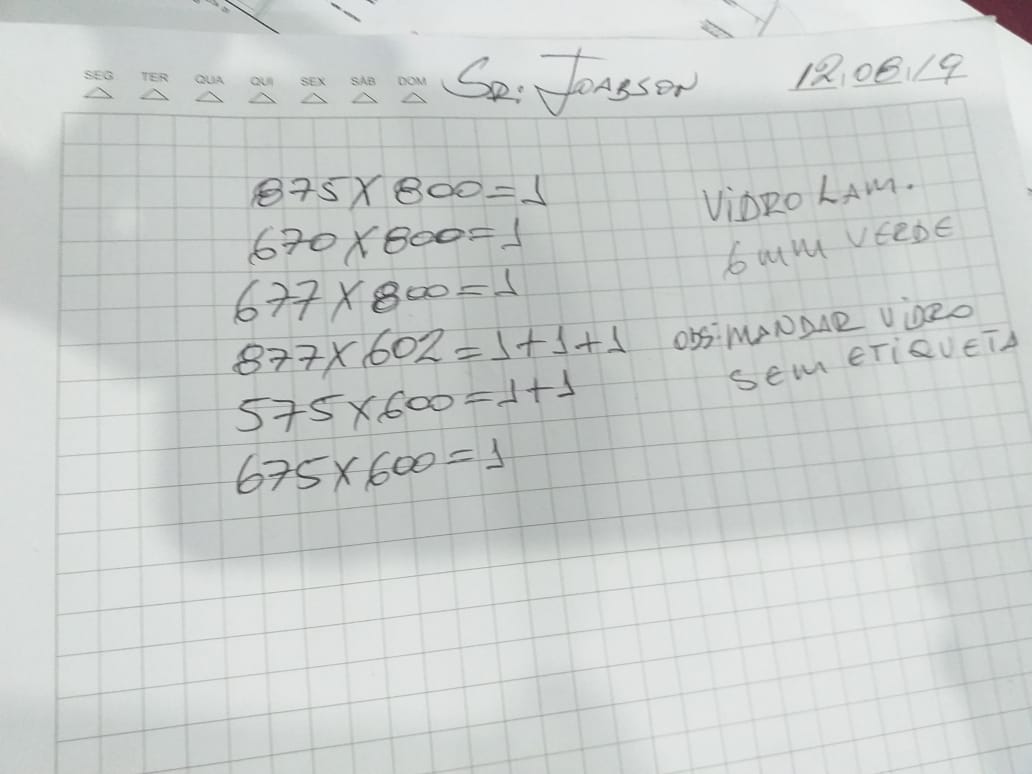 SEG TER QUA QUI SEX SAB DOM
SR. JOABSON 12.08.19
875X800=1
670X800=1
677X800=1
877X602=1+1+1
575X600=1+1
675X600=1
VIDRO LAM.
6mm VERDE
OBS:MANDAR VIDRO
SEM ETIQUETA